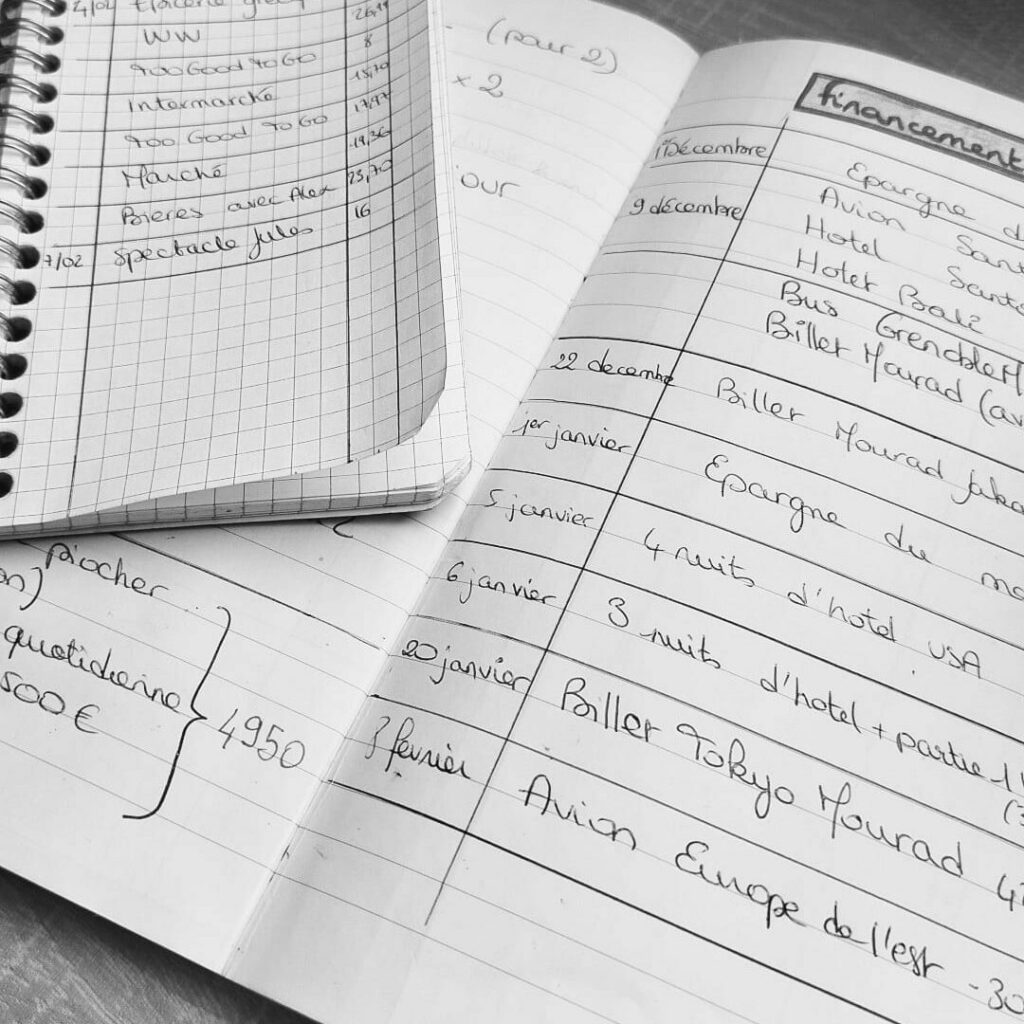 4/02
26,99
WW 8
Too Good To Go 15,70
Intermarché 17,97
Too Good To Go 19,36
Marché 25,70
Bieres avec Alex 16
7/02 Spectacle Jules
(pour 2)
× 2
our
piocher
on)
quotidienne
500 €
4950
financement
1 Décembre Epargne d
9 décembre Avion Sant
Hotel Santo
Hotel Bali
Bus Grenoble
Billet Mourad (av
22 decembre Billet Mourad Jaka
1er janvier Epargne du mo
5 janvier 4 nuits d'hotel USA
6 janvier 3 nuits d'hotel + partie
20 janvier Billet Tokyo Mourad
3 fevrier Avion Europe de l'est -30